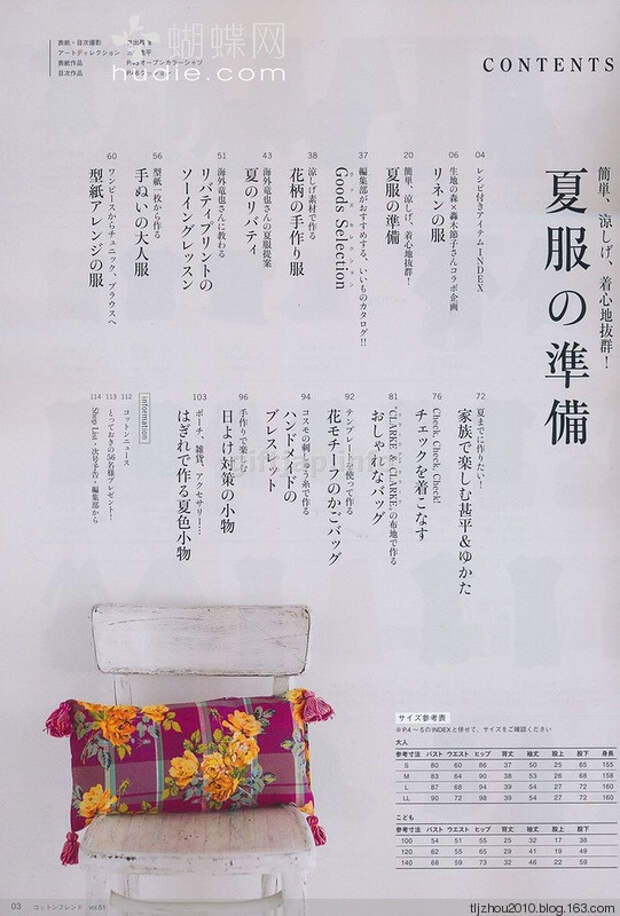 表紙・目次撮影
アートディレクション
表紙作品
P.45オープンカラーシャツ
目次作品
蝴蝶网
hudie.com
CONTENTS
簡単、涼しげ、着心地抜群!
夏服の準備
04
レシピ付きアイテムINDEX
06
生地の森×轟木節子さんコラボ企画
リネンの服
20
簡単、涼しげ、着心地抜群!
夏服の準備
37
編集部がおすすめする、いいものカタログ!!
Goods Selection
グッズセレクション
38
涼しげ素材で作る
花柄の手作り服
43
海外竜也さんの夏服提案
夏のリバティ
51
海外竜也さんに教わる
リバティプリントの
ソーイングレッスン
56
型紙一枚から作る
手ぬいの大人服
60
ワンピースからチュニック、ブラウスへ
型紙アレンジの服
72
夏までに作りたい!
家族で楽しむ甚平&ゆかた
76
Check, Check, Check!
チェックを着こなす
81
CLARKE & CLARKE の布地で作る
おしゃれなバッグ
92
テンプレートを使って作る
花モチーフのかごバッグ
94
コスモの刺しゅう糸で作る
ハンドメイドの
ブレスレット
96
手作りで楽しむ
日よけ対策の小物
103
ポーチ、雑貨、アクセサリー…
はぎれで作る夏色小物
information
112
コットンニュース
113
とっておきの56名様プレゼント!
114
Shop List・次号予告・編集部から
サイズ参考表
※P.4〜5のINDEXと併せて、サイズをご確認ください
大人
参考寸法 バスト ウエスト ヒップ 背丈 袖丈 股上 股下 身長
S 80 60 86 37 50 25 65 155
M 83 64 90 38 53 26 68 158
L 87 68 94 39 54 27 72 160
LL 90 72 98 39 54 27 72 160
こども
参考寸法 バスト ウエスト ヒップ 背丈 袖丈 股上 股下
100 54 51 55 25 32 17 38
120 62 55 65 29 41 19 49
140 68 59 73 32 46 22 59
03 コットンフレンド vol.51
tljzhou2010.blog.163.com